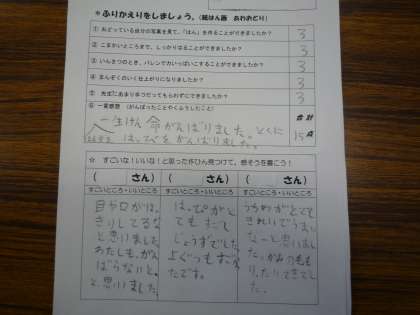 ＊ふりかえりをしましょう。(紙はん画 あわおどり)
① おどっている自分の写真を見て、「はん」を作ることができましたか？ 3
② こまかいところまで、しっかりはることができましたか？ 3
③ いんさつのとき、バレンで力いっぱいこすることができましたか？ 3
④ まんぞくのいく仕上がりになりましたか？ 3
⑤ 先生にあまり手つだってもらわずにできましたか？ 3
⑥ 一言感想 (がんばったことやくふうしたこと)
合計
一生けん命がんばりました。とくに
はっぴをがんばりました。
15点
☆ すごいな！いいな！と思った作ひん見つけて、感そうを書こう！
( さん) ( さん) ( さん)
すごいところ・いいところ すごいところ・いいところ すごいところ・いいところ
目や口がは、
きりしてるな
と思いました
わたしも、がん
ばらないと。
と思いました。
はっぴがと
ても
じょうずでした
よ
たです。
うちわがとても
きれいでうまい
なーと思いまし
た。かみの毛も